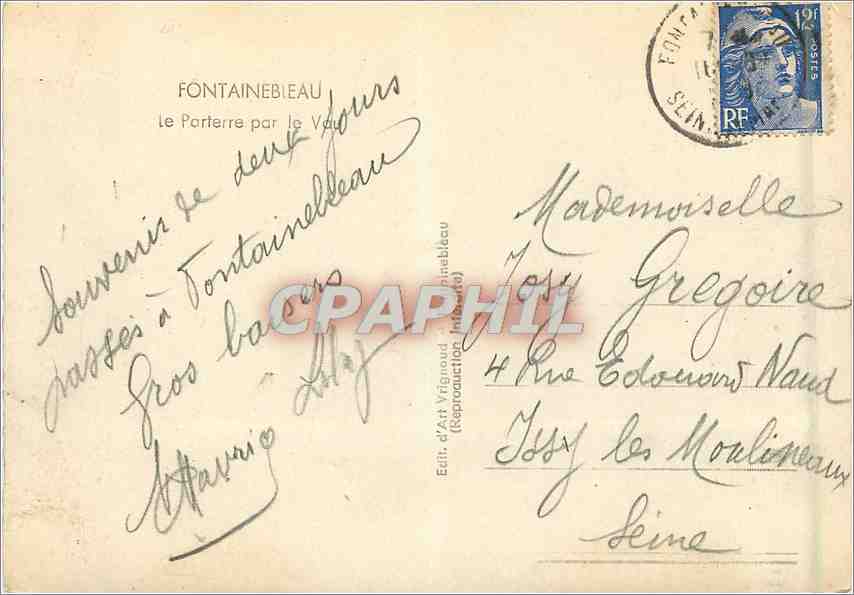 FONTAINEBLEAU
Le Parterre par le Vau
Souvenir de deux jours
passés à Fontainebleau
Gros baisers
Edit. d'Art Vrignoud
(Reproduction Interdite)
CPAPHIL
12f
POSTES
RF
Mademoiselle
Josy Gregoire
4 Rue Edouard Naud
Issy les Moulineaux
Seine